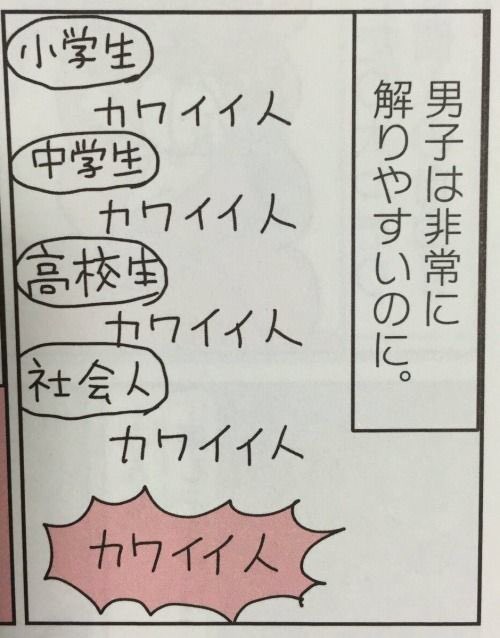 男子は非常に
解りやすいのに。
小学生
カワイイ人
中学生
カワイイ人
高校生
カワイイ人
社会人
カワイイ人
カワイイ人